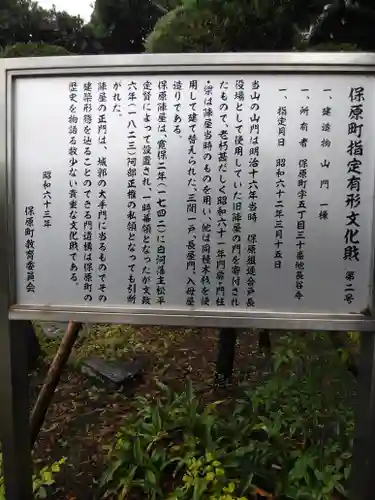 保原町指定有形文化財 第二号
一、建造物 山門 一棟
一、所有者 保原町字五丁目三十番地長谷寺
一、指定月日 昭和六十二年三月十五日
当山の山門は明治十六年当時、保原組連合戸長
役場として使用していた旧陣屋の門を寄付され
たもので、老朽甚だしく昭和六十一年門扉・門柱
・梁は陣屋当時のものを用い、他は同種木材を使
用して建て替えられた。三間一戸、長屋門、入母屋
造りである。
保原陣屋は、寛保二年(一七四二)に白河藩主松平
定賢によって設置され、一時幕領となったが文政
六年(一八二三)阿部正権の私領となっても引断
がれた。
陣屋の正門は、城郭の大手門に当るものでその
建築形態を辿ることのできる門遺構は保原町の
歴史を物語る数少ない貴重な文化財である。
昭和六十三年
保原町教育委員会